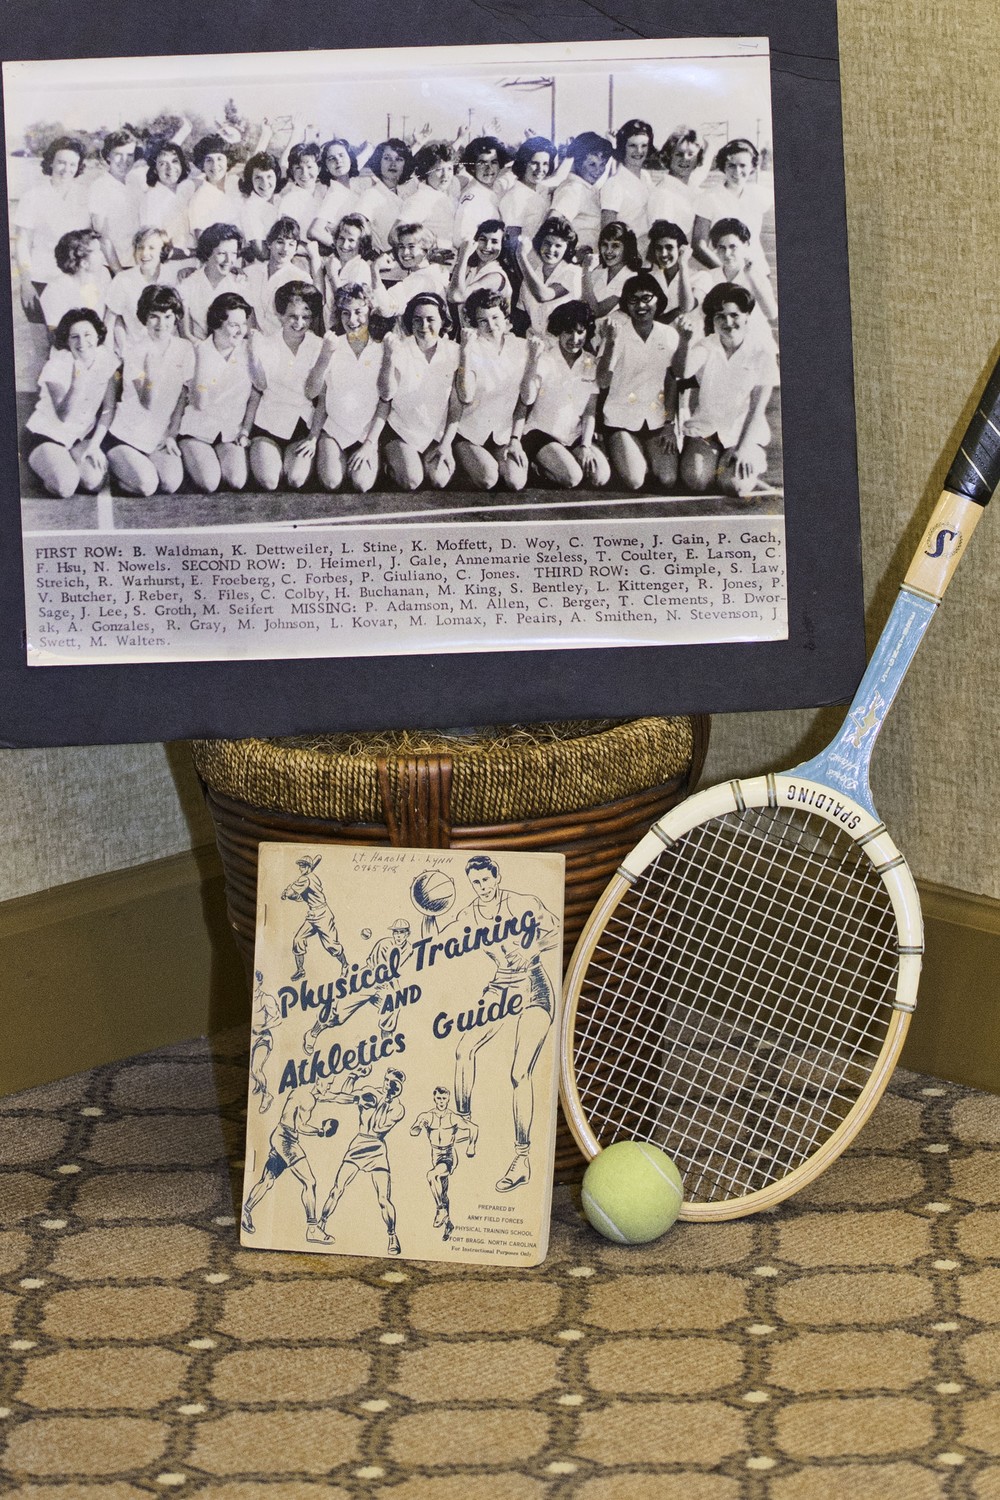 FIRST ROW: B. Waldman, K. Dettweiler, L. Stine, K. Moffett, D. Woy, C. Towne, J. Gain, P. Gach,
F. Hsu, N. Nowels. SECOND ROW: D. Heimerl, J. Gale, Annemarie Szeless, T. Coulter, E. Larson, C.
Streich, R. Warhurst, E. Froeberg, C. Forbes, P. Giuliano, C. Jones. THIRD ROW: G. Gimple, S. Law,
V. Butcher, J. Reber, S. Files, C. Colby, H. Buchanan, M. King, S. Bentley, L. Kittenger, R. Jones, P.
Sage, J. Lee, S. Groth, M. Seifert MISSING: P. Adamson, M. Allen, C. Berger, T. Clements, B. Dwor-
ak, A. Gonzales, R. Gray, M. Johnson, L. Kovar, M. Lomax, F. Peairs, A. Smithen, N. Stevenson, J
Swett, M. Walters.
S
SPALDING
Lt. Harold L. Lynn
Physical Training
AND
Athletics Guide
PREPARED BY
ARMY FIELD FORCES
PHYSICAL TRAINING SCHOOL
FORT BRAGG, NORTH CAROLINA
For Instructional Purposes Only